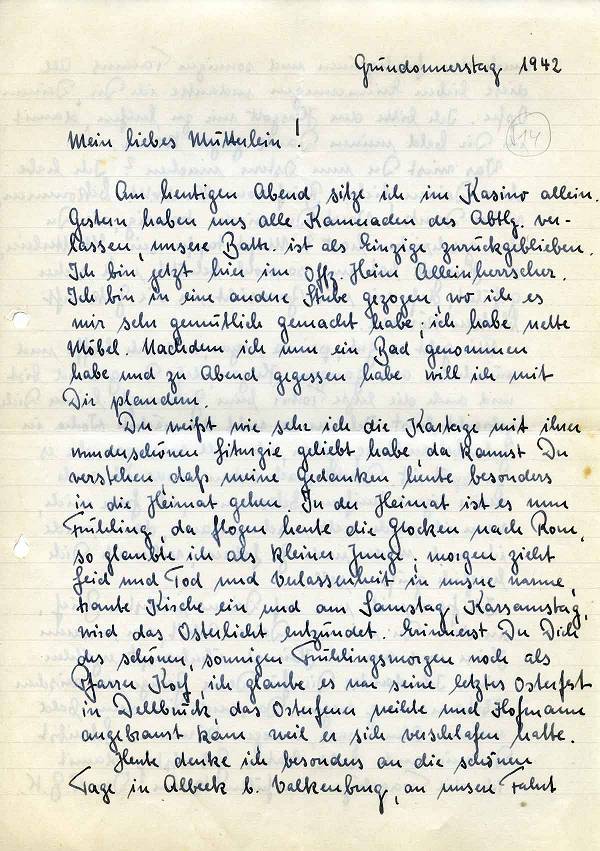 Gründonnerstag 1942
14
Mein liebes Mütterlein!
Am heutigen Abend sitze ich im Kasino allein.
Gestern haben uns alle Kameraden des Abtlg. ver-
lassen, unsere Battr. ist als Einzige zurückgeblieben.
Ich bin jetzt hier im Offz. Heim Alleinherrscher.
Ich bin in eine andre Stube gezogen, wo ich es
mir sehr gemütlich gemacht habe, ich habe nette
Möbel. Nachdem ich nun ein Bad genommen
habe und zu Abend gegessen habe will ich mit
Dir plaudern.
Du weißt wie sehr ich die Kartage mit ihrer
wunderschönen Liturgie geliebt habe, da kannst Du
verstehen, daß meine Gedanken heute besonders
in die Heimat gehen. In der Heimat ist es nun
Frühling, da flogen heute die Glocken nach Rom,
so glaubte ich als kleiner Junge, morgen zieht
Leid und Tod und Verlassenheit in unsre warme,
traute Kirche ein und am Samstag, Karsamstag,
wird das Osterlicht entzündet. Erinnerst Du Dich
des schönen, sonnigen Frühlingsmorgen noch als
Pfarrer Korf, ich glaube es war seine letztes Osterfest
in Dellbrück, das Osterfeuer weihte und Hofmann
angebraust kam weil er sich verschlafen hatte.
Heute denke ich besonders an die schönen
Tage in Albeck b. Valkenburg, an unsere Fahrt